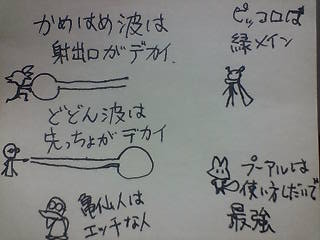 かめはめ波は
射出口がデカイ.
ピッコロは
緑メイン
どどん波は
先っちょがデカイ
プーアルは
使い方しだいで
最強
亀仙人は
エッチな人